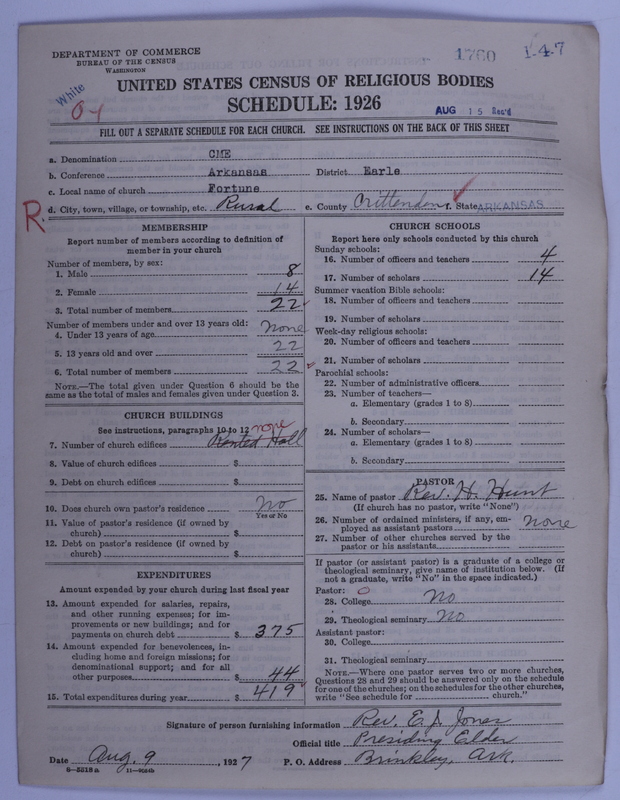 DEPARTMENT OF COMMERCE
BUREAU OF THE CENSUS
WASHINGTON
1760
1-47
White
UNITED STATES CENSUS OF RELIGIOUS BODIES
SCHEDULE: 1926
AUG 15 Rec'd
FILL OUT A SEPARATE SCHEDULE FOR EACH CHURCH. SEE INSTRUCTIONS ON THE BACK OF THIS SHEET
a. Denomination CME
b. Conference Arkansas District Earle
c. Local name of church Fortune
R
d. City, town, village, or township, etc. Rural e. County Crittenden f. State ARKANSAS
MEMBERSHIP
Report number of members according to definition of
member in your church
Number of members, by sex:
1. Male 8
2. Female 14
3. Total number of members 22
Number of members under and over 13 years old:
4. Under 13 years of age None
5. 13 years old and over 22
6. Total number of members 22
NOTE.—The total given under Question 6 should be the
same as the total of males and females given under Question 3.
CHURCH BUILDINGS
See instructions, paragraphs 10 to 12 none
7. Number of church edifices Rented Hall
8. Value of church edifices $
9. Debt on church edifices $
10. Does church own pastor's residence No
Yes or No
11. Value of pastor's residence (if owned by
church) $
12. Debt on pastor's residence (if owned by
church) $
EXPENDITURES
Amount expended by your church during last fiscal year
13. Amount expended for salaries, repairs,
and other running expenses; for im-
provements or new buildings; and for
payments on church debt $ 375
14. Amount expended for benevolences, in-
cluding home and foreign missions; for
denominational support; and for all
other purposes $ 44
15. Total expenditures during year $ 419
CHURCH SCHOOLS
Report here only schools conducted by this church
Sunday schools:
16. Number of officers and teachers 4
17. Number of scholars 14
Summer vacation Bible schools:
18. Number of officers and teachers
19. Number of scholars
Week-day religious schools:
20. Number of officers and teachers
21. Number of scholars
Parochial schools:
22. Number of administrative officers
23. Number of teachers—
a. Elementary (grades 1 to 8)
b. Secondary
24. Number of scholars—
a. Elementary (grades 1 to 8)
b. Secondary
PASTOR
25. Name of pastor Rev. H. Hunt
(If church has no pastor, write "None")
26. Number of ordained ministers, if any, em-
ployed as assistant pastors none
27. Number of other churches served by the
pastor or his assistants
If pastor (or assistant pastor) is a graduate of a college or
theological seminary, give name of institution below. (If
not a graduate, write "No" in the space indicated.)
Pastor: O
28. College No
29. Theological seminary No
Assistant pastor:
30. College
31. Theological seminary
NOTE.—Where one pastor serves two or more churches,
Questions 28 and 29 should be answered only on the schedule
for one of the churches; on the schedules for the other churches,
write "See schedule for church."
Signature of person furnishing information Rev. E. J. Jones
Official title Presiding Elder
Date Aug. 9, 1927 P. O. Address Brinkley, Ark.